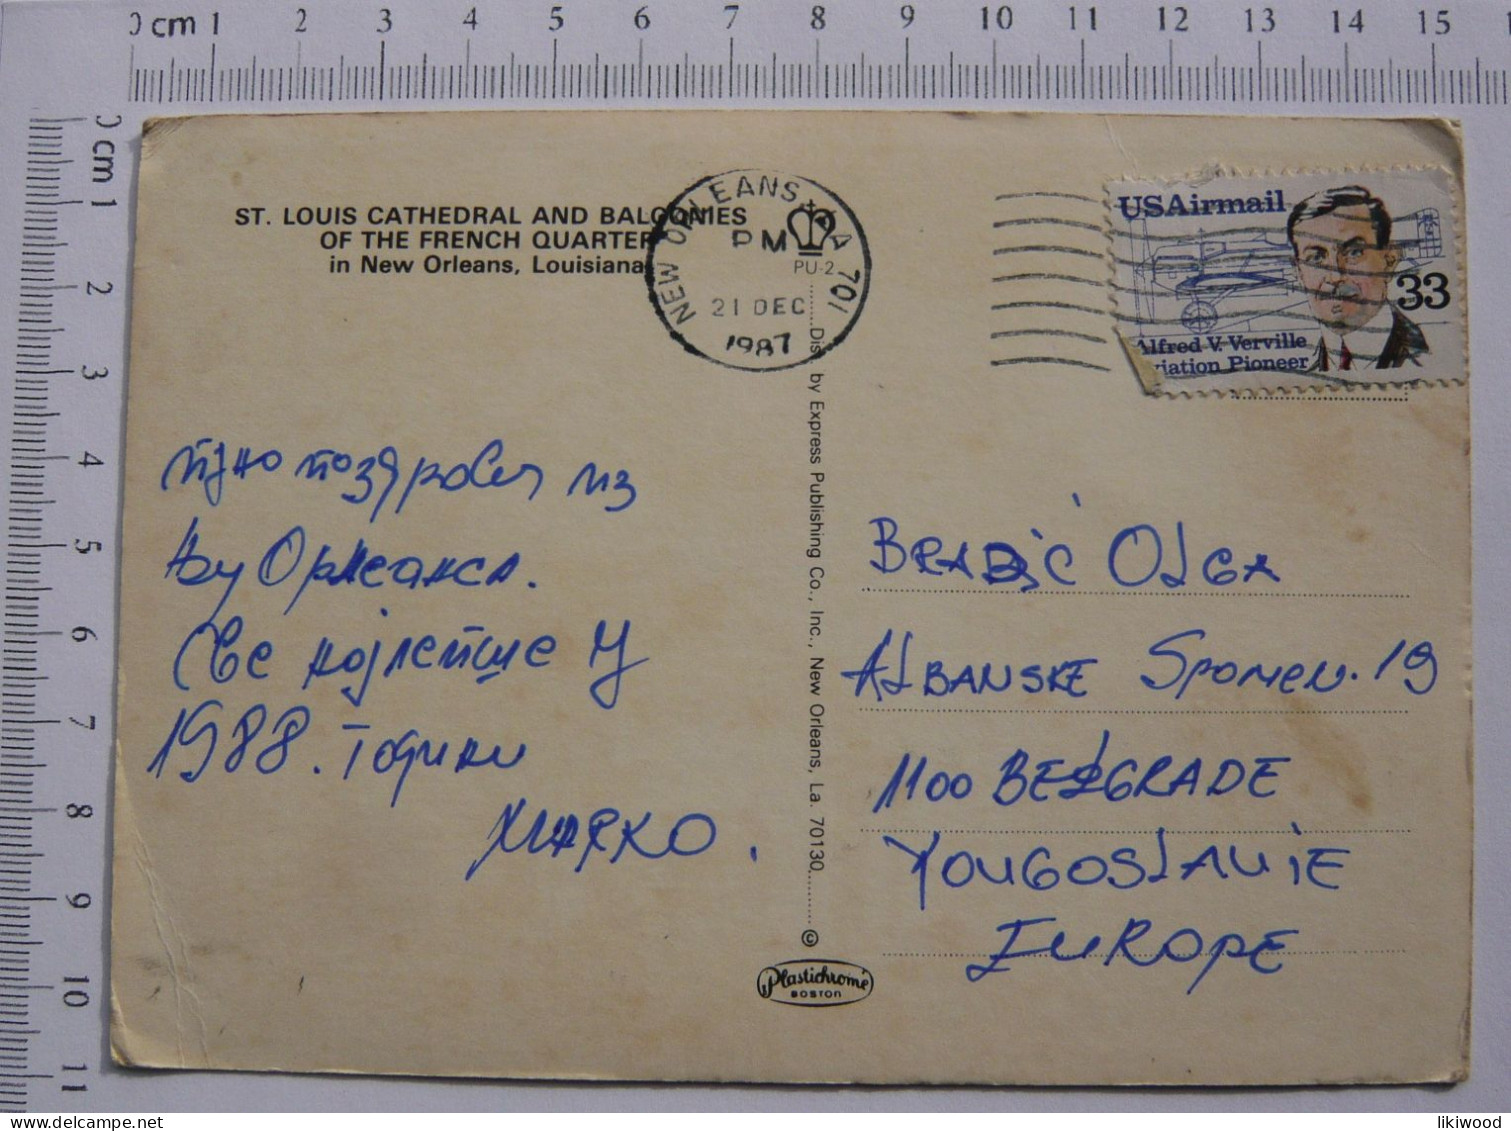 0 cm 1 2 3 4 5 6 7 8 9 10 11 12 13 14 15
0 cm 1 2 3 4 5 6 7 8 9 10 11
ST. LOUIS CATHEDRAL AND BALCONIES
OF THE FRENCH QUARTER
in New Orleans, Louisiana
NEW ORLEANS, LA 701
PM
PU-2
21 DEC
1987
USAirmail
33
Alfred V. Verville
Aviation Pioneer
Dist. by Express Publishing Co., Inc., New Orleans, La. 70130
©
Plastichrome
BOSTON
пуно поздрава из
Њу Орлеанса.
Све најлепше у
1988. Години
MAPKO.
BRADIĆ OLGA
ALBANSKE SPOMEN. 19
1100 BELGRADE
YOUGOSLAVIE
EUROPE
likiwood